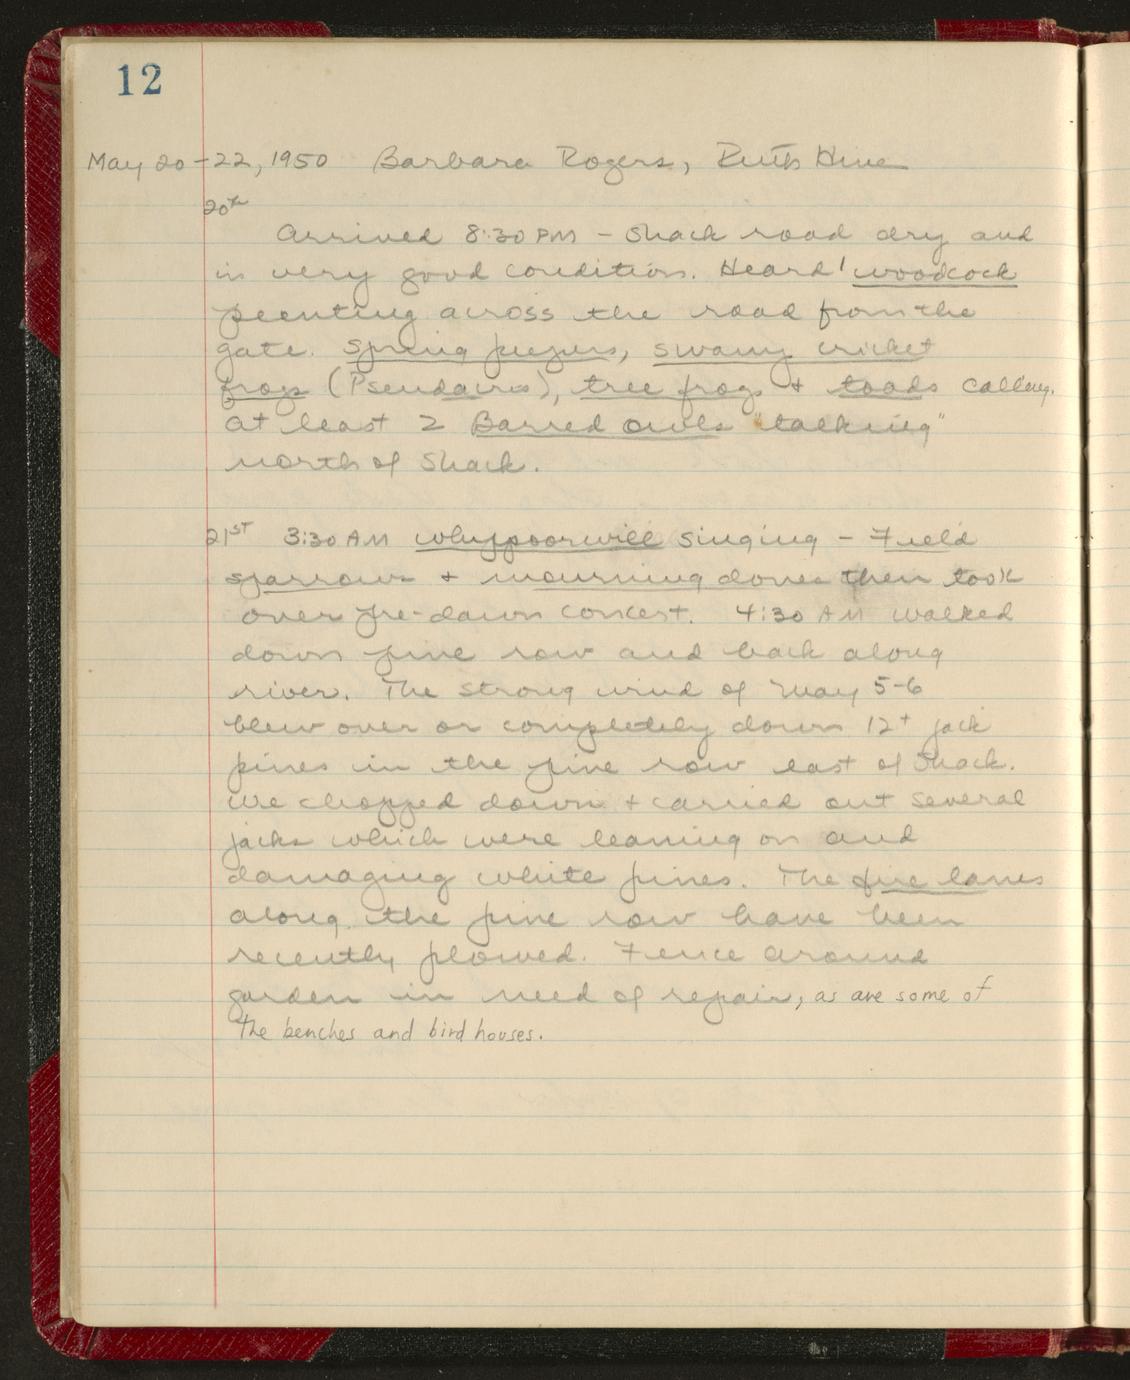 12
May 20-22, 1950 Barbara Rogers, Ruth Hine
20th
Arrived 8:30 PM - Shack road dry and
in very good condition. Heard 1 woodcock
peenting across the road from the
gate. Spring peepers, swamp cricket
frogs (Pseudacris), tree frogs + toads calling.
At least 2 Barred owls "talking"
north of Shack.
21ST 3:30 AM whippoorwill singing - Field
sparrows + mourning doves then took
over pre-dawn concert. 4:30 AM walked
down pine row and back along
river. The strong wind of May 5-6
blew over or completely down 12+ jack
pines in the pine row east of Shack.
We chopped down + carried out several
jacks which were leaning on and
damaging white pines. The fire lanes
along the pine row have been
recently plowed. Fence around
garden in need of repair, as are some of
the benches and bird houses.